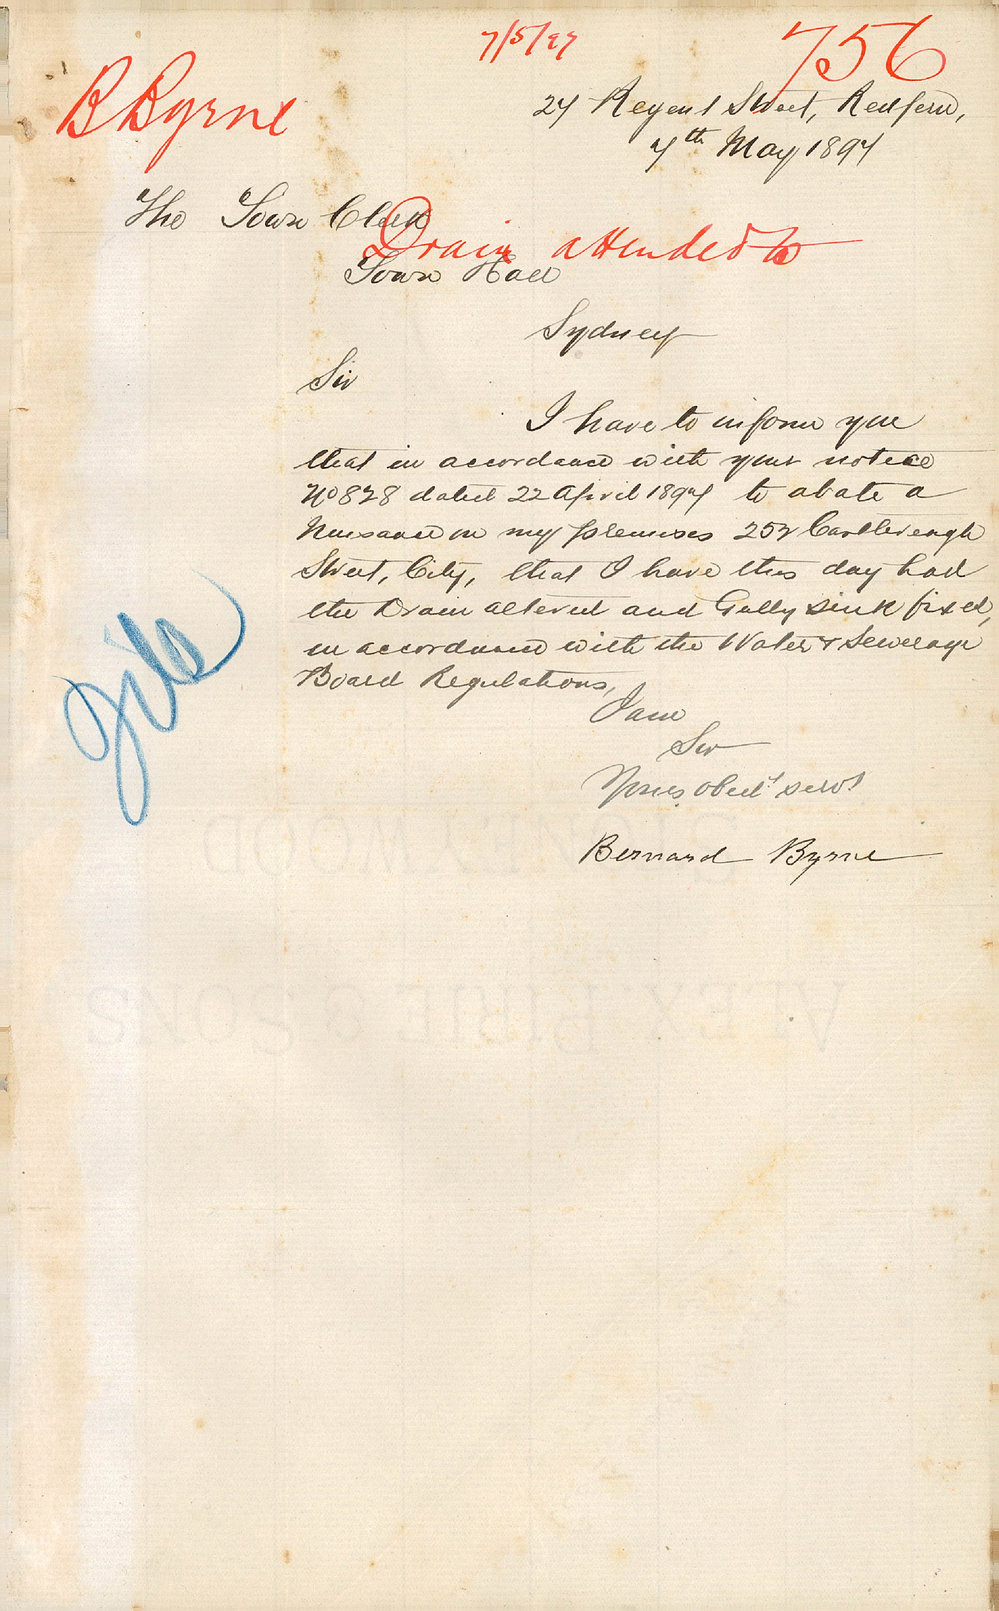 7/5/97
756
B Byrne
27 Regent Street, Redfern,
7th May 1897
The Town Clerk
Drain attended to
Town Hall
Sydney
Sir
I have to inform you
that in accordance with your notice
No 828 dated 22 April 1897 to abate a
Nuisance on my premises 252 Castlereagh
Street, City, that I have this day had
the Drain altered and Gully Sink fixed,
in accordance with the Water & Sewerage
Board Regulations,
I am
Sir
Yours obedt servt
Bernard Byrne
File
ALEX PIRIE & SONS